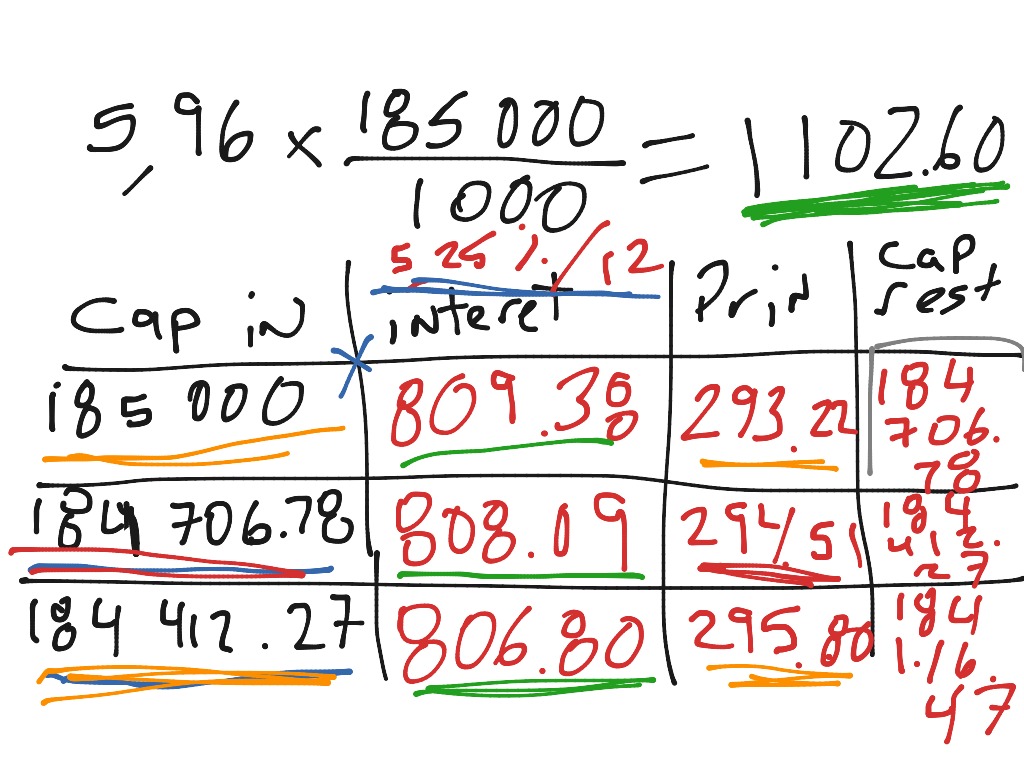 5,96 × 185 000 / 1000 = 1102.60
5 25 %. / 12
Cap in interet Prin cap rest
185 000 809.38 293.22 184 706.78
184 706.78 808.09 294.51 184 412.27
184 412.27 806.80 295.80 184 116.47